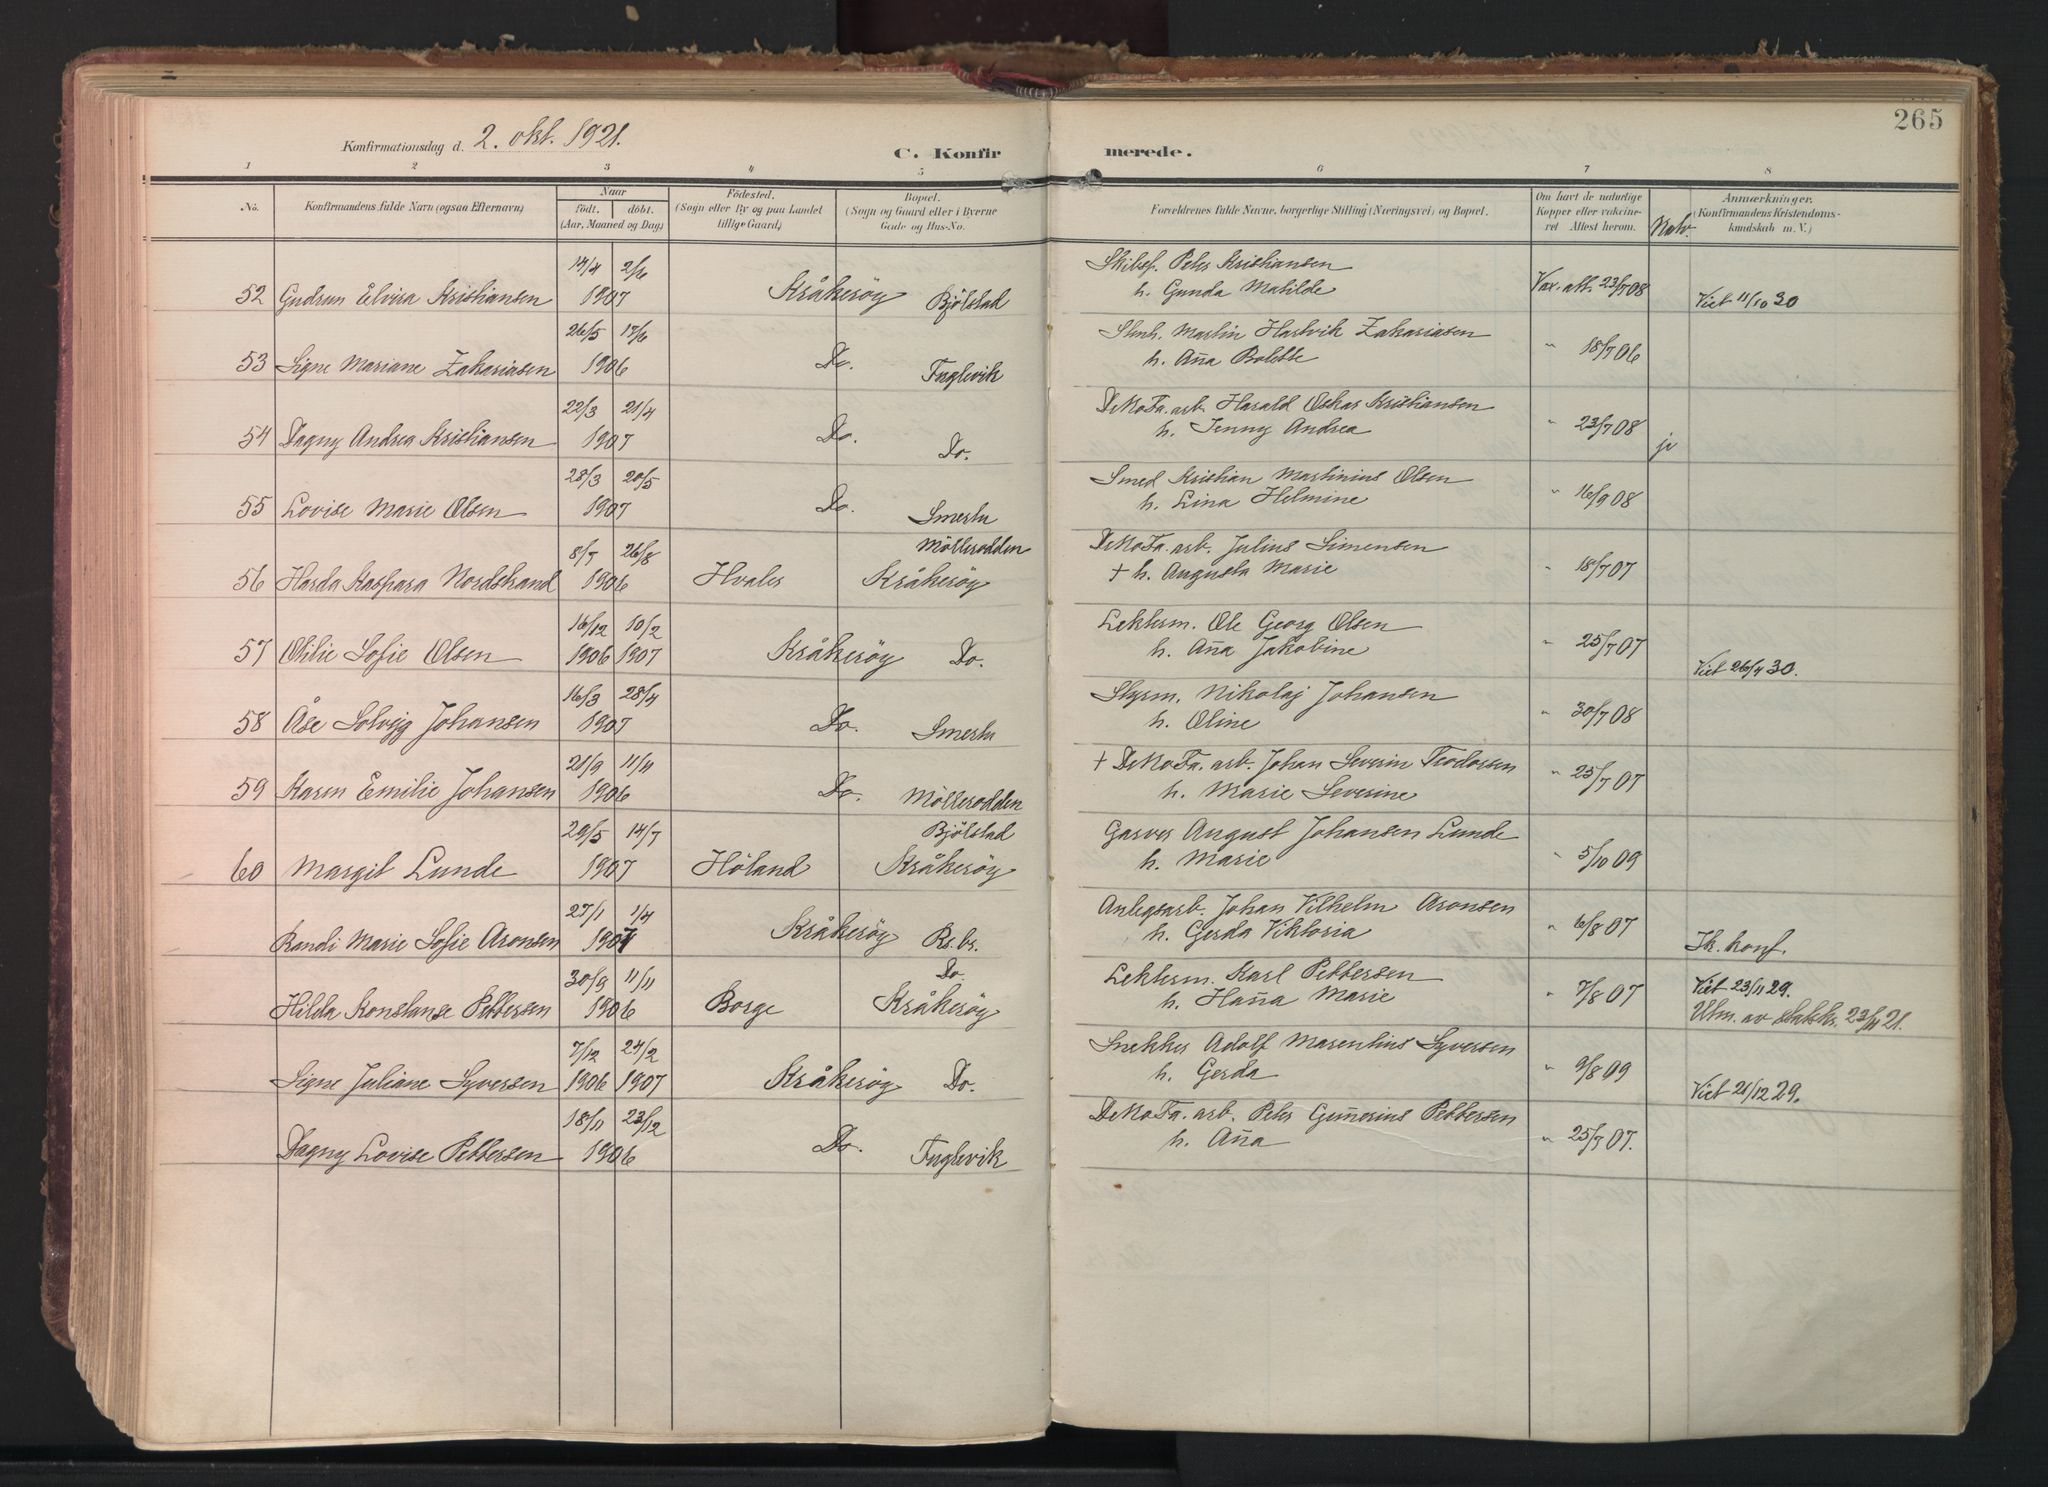 265
Konfirmationsdag d. 2. okt. 1921.
C. Konfirmerede.
1 2 3 4 5 6 7 8
No. Konfirmandens fulde Navn (ogsaa Efternavn) Naar födt. döbt. (Aar, Maaned og Dag) Födested. (Sogn eller By og paa Landet tillige Gaard) Bopæl. (Sogn og Gaard eller i Byerne Gade og Hus-No. Forældrenes fulde Navne, borgerlige Stilling (Næringsvei) og Bopæl. Om havt de naturlige Kopper eller vakcineret Attest herom. Anmærkninger. (Konfirmandens Kristendomskundskab m. V.)
14/4 2/6 Skibsf. Peter Kristiansen
52 Gudrun Elvira Kristiansen 1907 Kråkeröy Bjölstad h. Gunda Matilde Vax. att. 23/7 08 Viet 11/10 30
26/5 17/6 Stenh. Martin Hartvik Zakariasen
53 Signe Mariane Zakariasen 1906 Do. Fuglevik h. Aña Bolette " 18/7 06
22/3 21/4 DeNoFa. arb. Harald Oskar Kristiansen
54 Dagny Andrea Kristiansen 1907 Do. Do. h. Jenny Andrea " 23/7 08 je
28/3 20/5 Smed Kristian Martinius Olsen
55 Lovise Marie Olsen 1907 Do. Smertu h. Lina Helmine " 16/9 08
8/7 26/8 Möllerodden DeNoFa. arb. Julius Simensen
56 Harda Kaspara Nordstrand 1906 Hvaler Kråkeröy + h. Augusta Marie " 18/7 07
16/12 10/2 Lekterm. Ole Georg Olsen
57 Otilie Sofie Olsen 1906 1907 Kråkeröy Do. h. Aña Jakobine " 25/7 07 Viet 26/4 30.
16/3 28/4 Styrm. Nikolaj Johansen
58 Åse Solvejg Johansen 1907 Do. Smertu h. Oline " 30/7 08
21/9 11/11 + DeNoFa. arb. Johan Severin Teodorsen
59 Karen Emilie Johansen 1906 Do. Möllerodden h. Marie Severine " 25/7 07
29/5 14/7 Bjölstad Garver August Johansen Lunde
60 Margit Lunde 1907 Höland Kråkeröy h. Marie " 5/10 09
27/1 1/4 Anlegsarb. Johan Vilhelm Aronsen
Randi Marie Sofie Aronsen 1907 Kråkeröy Rs. br. h. Gerda Viktoria " 6/8 07 Ik. konf.
30/9 11/11 Do. Lekterm. Karl Pettersen Viet 23/11 29.
Hilda Konstanse Pettersen 1906 Borge Kråkeröy h. Haña Marie " 7/8 07 Utm. av statskr. 23/11 21.
7/12 24/2 Snekker Adolf Marentius Syversen
Signe Juliane Syversen 1906 1907 Kråkeröy Do. h. Gerda " 9/8 09 Viet 21/12 29.
18/11 23/12 DeNoFa. arb. Peter Guñerius Pettersen
Dagny Lovise Pettersen 1906 Do. Fuglevik h. Aña " 25/7 07.